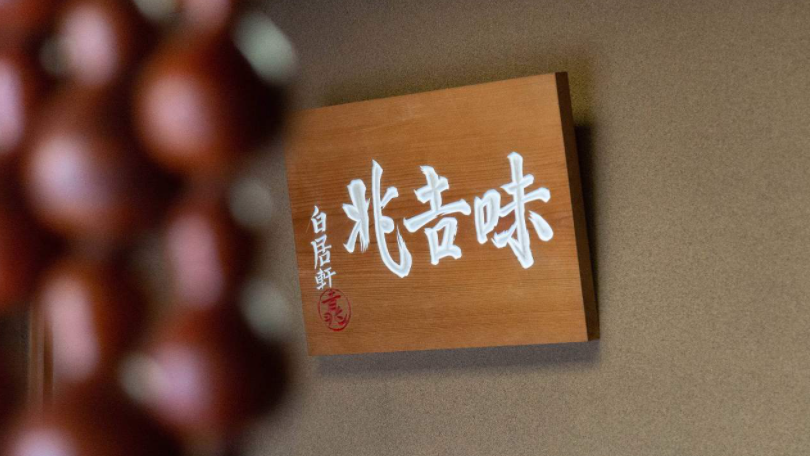 味吉兆
白居軒